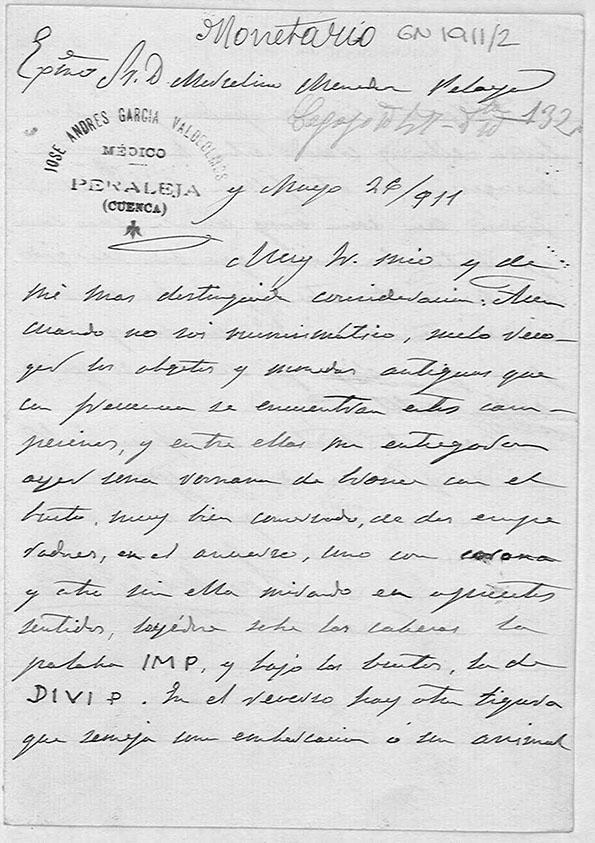 Monetario GN 1911/2
Exmo Sr. D. Marcelino Menendez Pelayo
132
JOSE ANDRES GARCIA VALDEOLIVAS
MÉDICO
PERALEJA
(CUENCA)
y Mayo 26/911
Muy Sr. mio y de
mi mas distinguida consideracion: Aun
cuando no soi numismático, suelo reco-
ger los objetos y monedas antiguas que
con frecuencia se encuentran estos cam-
pesinos, y entre ellas me entregaron
ayer una romana de bronce con el
busto, muy bien conservado, de dos empe
radores, en el anverso, uno con corona
y otro sin ella mirando en opuestos
sentidos, leyéndose sobre las cabezas la
palabra IMP, y bajo los bustos, la de
DIVI P. En el reverso hay otra figura
que semeja una embarcacion ó un animal